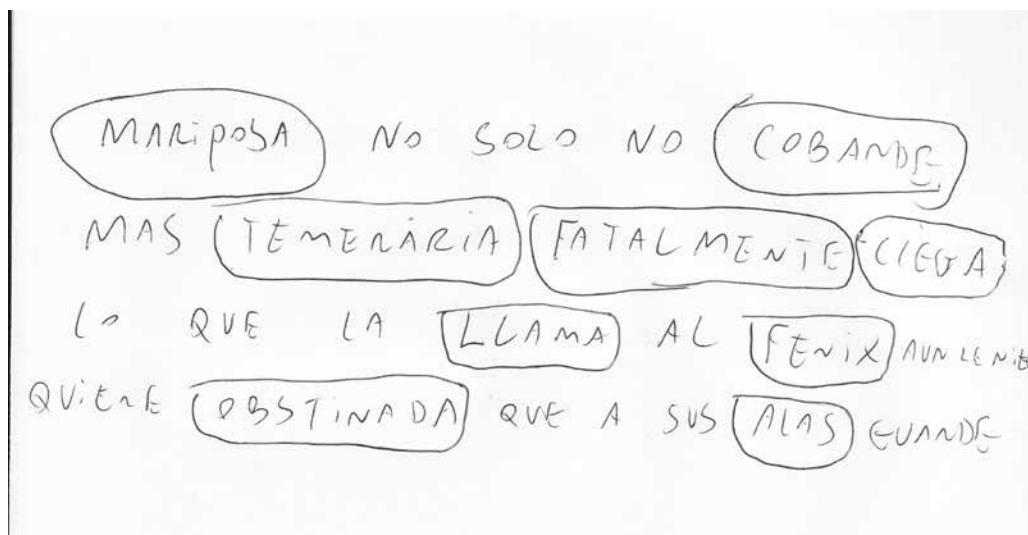 MARiPOSA NO SOLO NO COBARDE
MAS TEMERÁRiA FATALMENTE CIEGA
LO QUE LA LLAMA AL FENiX AUN LE NiE
QUiERE OBSTiNADA QUE A SUS ALAS GUARDE